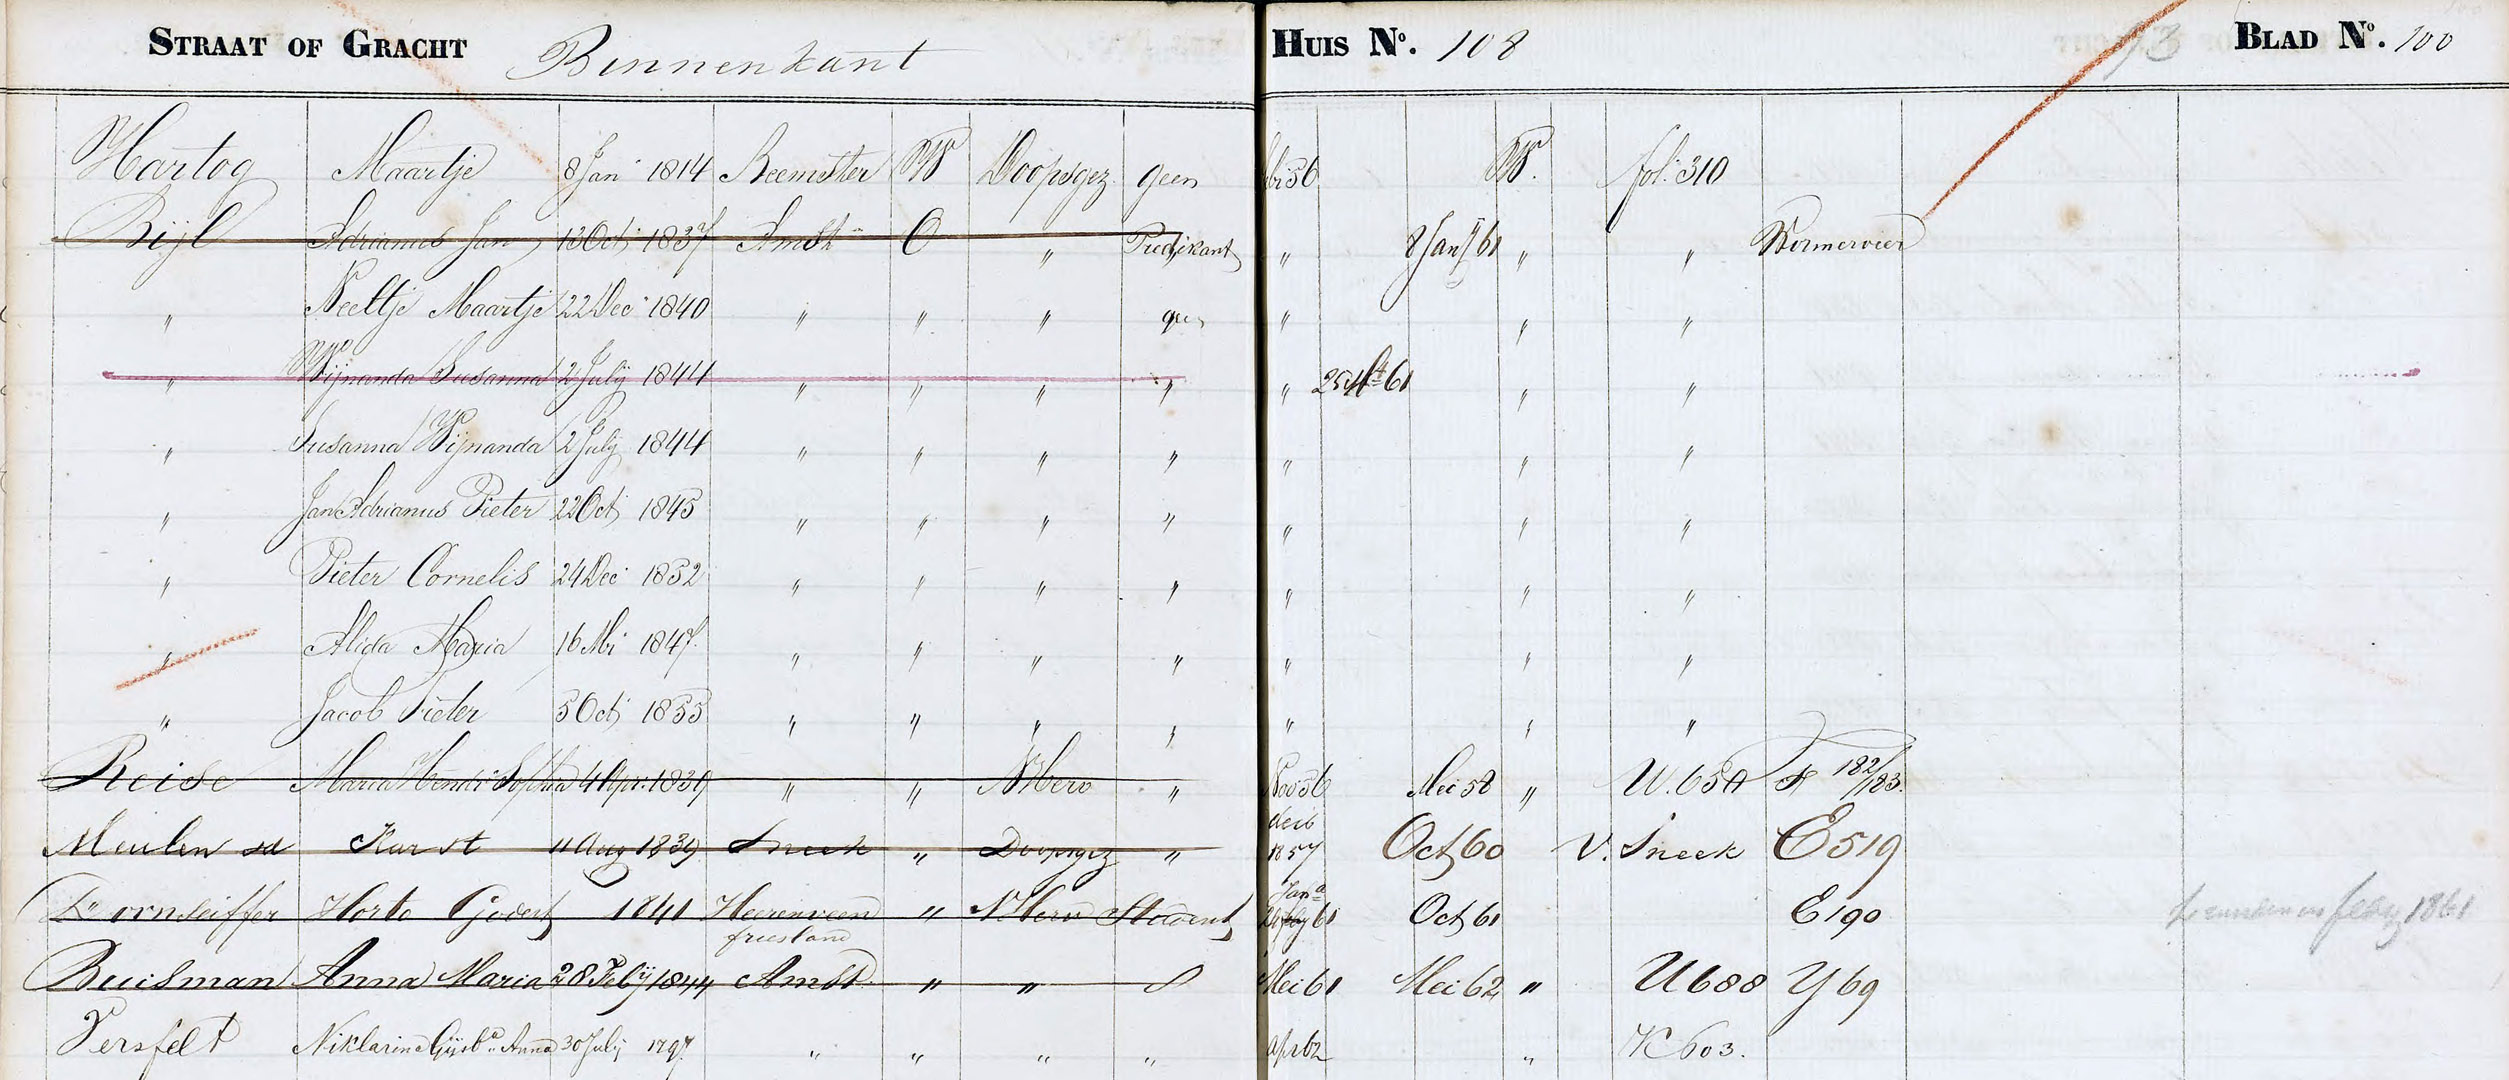 STRAAT OF GRACHT Binnenkant HUIS No. 108 93 BLAD No. 100
Hartog Maartje 8 Jan 1814 Beemster W Doopsgez. geen 56 W. fol. 310
Bijl Adrianus Jan 13 Oct 1837 Amst O " Predikant " 8 Jan 61 " " Wormerveer
" Neeltje Maartje 22 Dec 1840 " " " geen " " "
" Wijnanda Susanna 2 Julij 1844 " " " " " 25 61 " "
" Susanna Wijnanda 2 July 1844 " " " " " " "
" Jan Adrianus Pieter 22 Oct 1845 " " " " " " "
" Pieter Cornelis 24 Dec 1852 " " " " " " "
" Alida Maria 16 1847 " " " " " " "
" Jacob Pieter 5 Oct 1855 " " " " " " "
Reise Maria Hendr Sophia 4 Apr. 1839 " " N Herv " Nov 56 Mei 58 " W. 650 182/183.
Meulen Karst 11 Aug 1839 Sneek " Doopsgez " decb 1857 Oct 60 V. Sneek E 519
Dornseiffer Horto Godert 1841 Heerenveen friesland " N Herv Student Jan 24 61 Oct 61 E 190 feby 1861
Buisman Anna Maria 28 Feby 1844 Amst. " " Mei 61 Mei 62 " U 688 Y 69
Persfelt Niklarina Gijsb. Anna 30 July 1797 " " " " apr 62 " K 603.